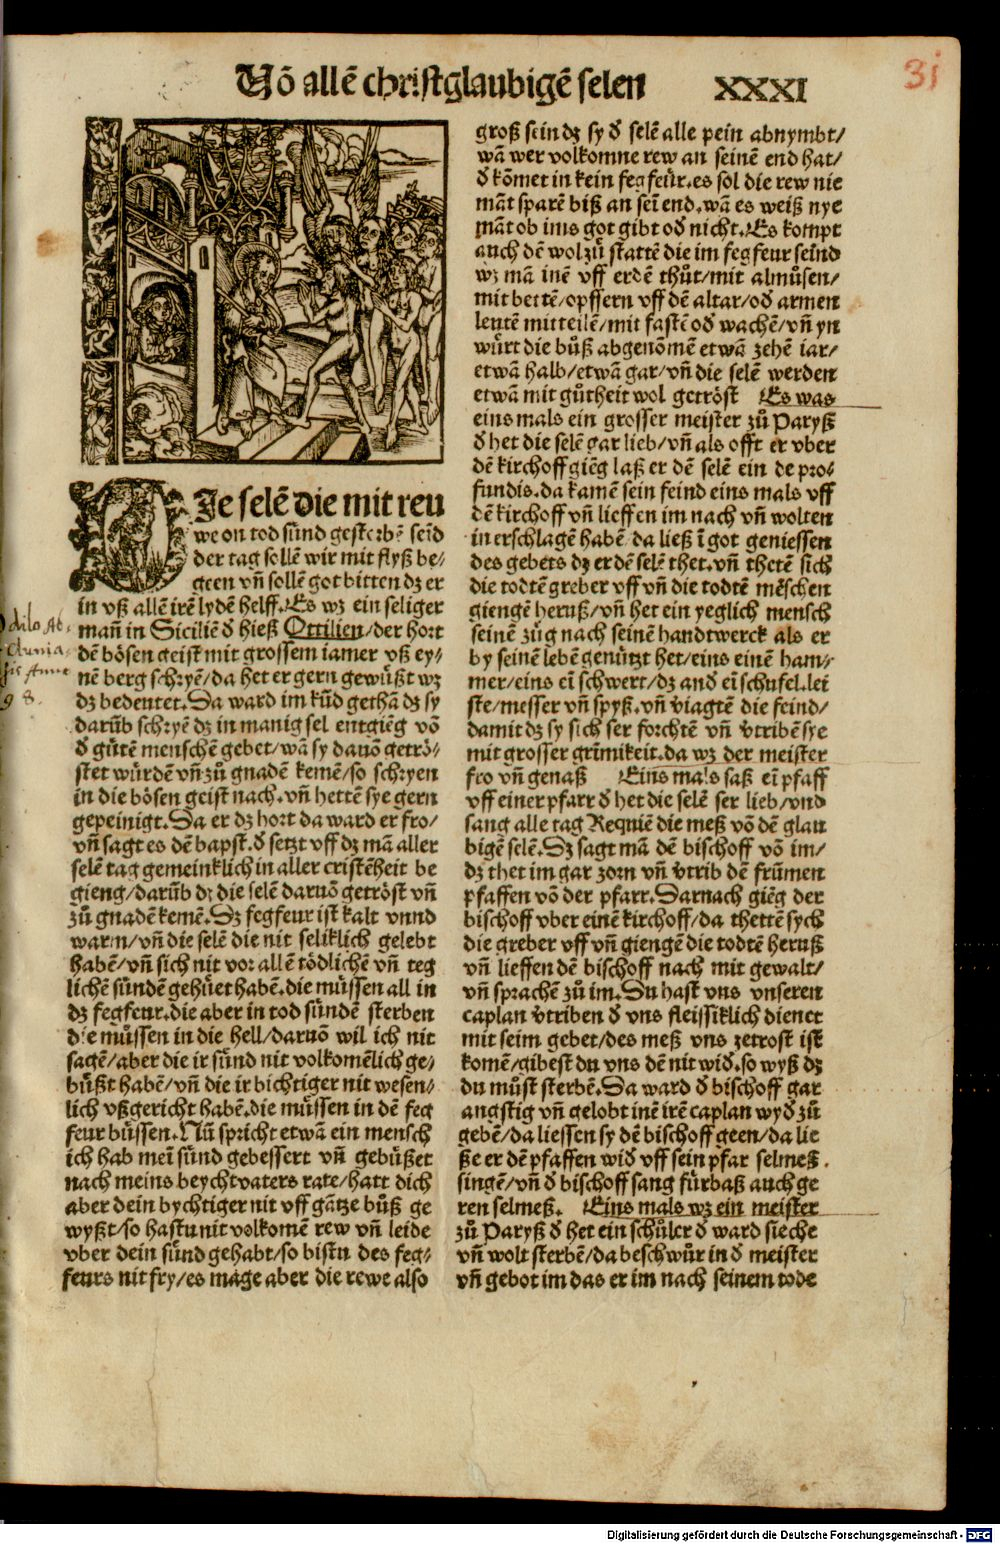 Võ allẽ christglaubigẽ selen XXXI
31
DJe selẽ die mit reu
we on tod sünd gestorbẽ seĩd
der tag sollẽ wir mit flyß be⸗
geen vñ sollẽ got bitten dz er
in vß allẽ irẽ lydẽ helff. Es wz ein seliger
mañ in Siciliẽ d̕ hieß Ottilien/der hort
dẽ bösen geist mit grossem iamer vß ey⸗
nẽ berg schryẽ/da het er gern gewüßt wz
dz bedeutet. Da ward im kũd gethã dz sy
darũb schryẽ dz in manig sel entgiẽg võ
d̕ gůtẽ menschẽ gebet/wã sy dauõ getrö⸗
stet würdẽ vñ zů gnadẽ kemẽ/so schryen
in die bösen geist nach. vñ hettẽ sye gern
gepeinigt. Da er dz hort da ward er fro/
vñ sagt es dẽ bapst. d̕ setzt vff dz mã aller
selẽ tag gemeinklich in aller cristẽheit be
gieng/darũb dz die selẽ daruõ getröst vñ
zů gnadẽ kemẽ. Dz fegfeur ist kalt vnnd
warm/vñ die selẽ die nit seliklich gelebt
habẽ/vñ sich nit vor allẽ tödlichẽ vñ teg
lichẽ sündẽ gehüet habẽ. die müssen all in
dz fegfeur. die aber in tod sündẽ sterben
die müssen in die hell/daruõ wil ich nit
sagẽ/aber die ir sünd nit volkomẽlich ge⸗
büßt habẽ/vñ die ir bichtiger nit wesen⸗
lich vßgericht habẽ. die müssen in dẽ feg
feur büssen. Nũ spricht etwã ein mensch
ich hab meĩ sünd gebessert vñ gebüßet
nach meins beychtvaters rate/hatt dich
aber dein bychtiger nit vff gãtze bůß ge
wyßt/so hastu nit volkomẽ rew vñ leide
vber dein sünd gehabt/so bistu des feg⸗
feurs nit fry/es mage aber die rewe also
groß sein dz sy d̕ selẽ alle pein abnymbt/
wã wer volkomne rew an seinẽ end hat/
d̕ kõmet in kein fegfeür. es sol die rew nie
mãt sparẽ biß an seĩ end. wã es weiß nye
mãt ob ims got gibt od̕ nicht. Es kompt
auch dẽ wol zů stattẽ die im fegfeur seind
wz mã inẽ vff erdẽ thůt/mit almůsen/
mit bettẽ/opffern vff dẽ altar/od̕ armen
leutẽ mitteilẽ/mit fastẽ od̕ wachẽ/vñ yn
würt die bůß abgenõmẽ etwã zehẽ iar/
etwã halb/etwã gar/vñ die selẽ werden
etwã mit gůtheit wol getröst Es was
eins mals ein grosser meister zů Paryß
d̕ het die selẽ gar lieb/vñ als offt er vber
dẽ kirchoff giẽg laß er dẽ selẽ ein de pro⸗
fundis. da kamẽ sein feind eins mals vff
dẽ kirchoff vñ lieffen im nach vñ wolten
in erschlagẽ habẽ da ließ ĩ got geniessen
des gebets dz er dẽ selẽ thet. vñ thetẽ sich
die todtẽ greber vff vñ die todtẽ mẽschen
giengẽ heruß/vñ het ein yeglich mensch
seinẽ züg nach seinẽ handtwerck als er
by seinẽ lebẽ genützt het/eins einẽ ham⸗
mer/eins eĩ schwert/dz and̕ eĩ schufel. lei
ste/messer vñ spyß. vñ v̕iagtẽ die feind/
damit dz sy sich ser forchtẽ vñ v̕tribẽ sye
mit grosser grĩmikeit. da wz der meister
fro vñ genaß Eins mals saß eĩ pfaff
vff einer pfarr d̕ het die selẽ ser lieb/vnd
sang alle tag Requiẽ die meß võ dẽ glau
bigẽ selẽ. Dz sagt mã dẽ bischoff võ im/
dz thet im gar zorn vñ v̕trib dẽ frũmen
pfaffen võ der pfarr. Darnach giẽg der
bischoff vber einẽ kirchoff/da thettẽ sych
die greber vff vñ giengẽ die todtẽ heruß
vñ lieffen dẽ bischoff nach mit gewalt/
vñ sprachẽ zů im. Du hast vns vnseren
caplan v̕triben d̕ vns fleissiklich dienet
mit seim gebet/des meß vns zetrost ist
komẽ/gibest du vns dẽ nit wid̕. so wyß dz
du můst sterbẽ. Da ward d̕ bischoff gar
angstig vñ gelobt inẽ irẽ caplan wyd̕ zů
gebẽ/da liessen sy dẽ bischoff geen/da lie
ße er dẽ pfaffen wid̕ vff sein pfar selmeß
singẽ/vñ d̕ bischoff sang fürbaß auch ge
ren selmeß. Eins mals wz ein meister
zů Paryß d̕ het ein schůler d̕ ward sieche
vñ wolt sterbẽ/da beschwůr in d̕ meister
vñ gebot im das er im nach seinem tode
Digitalisierung gefördert durch die Deutsche Forschungsgemeinschaft - DFG